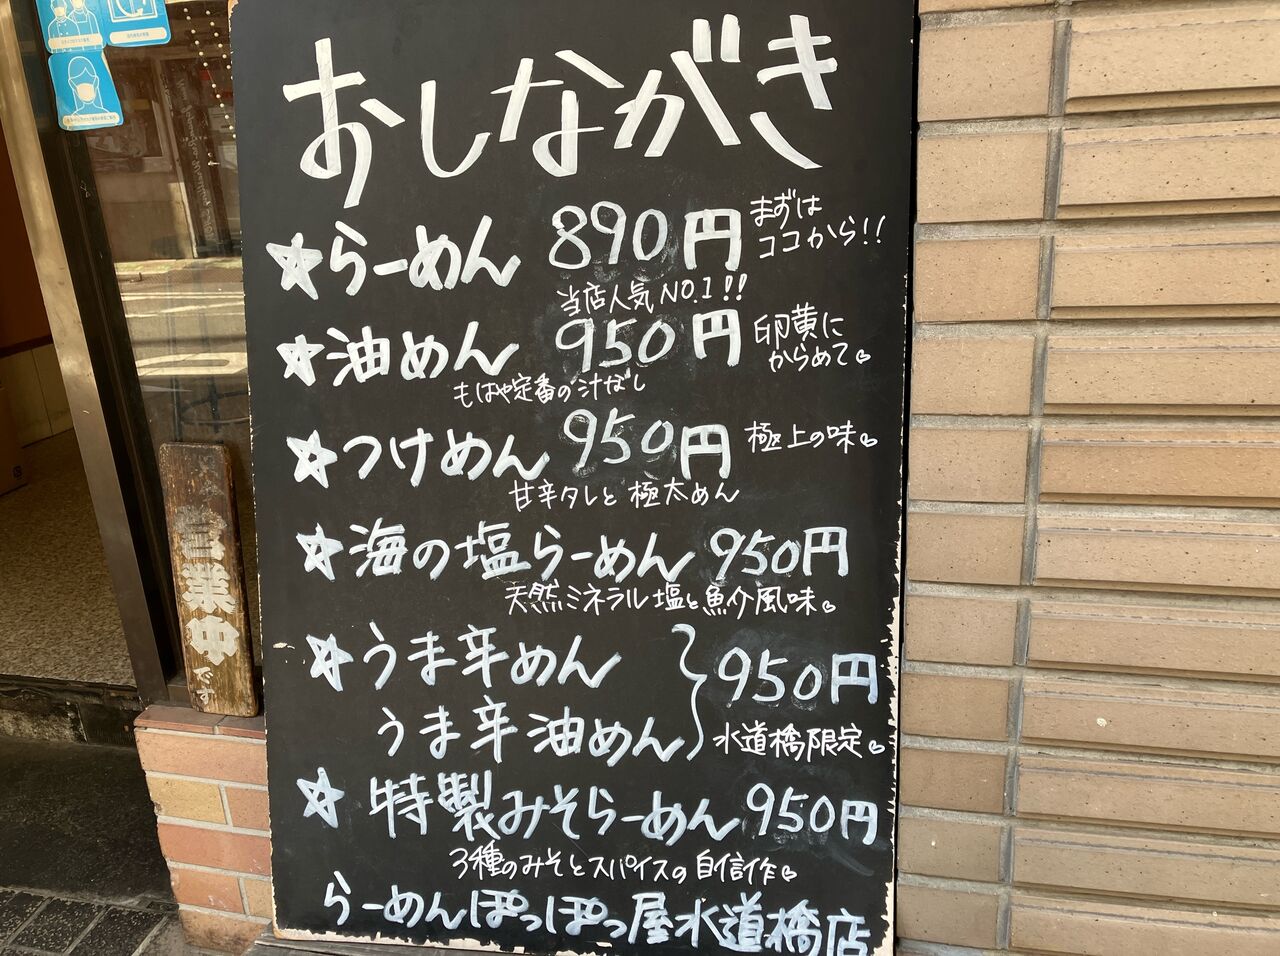 おしながき
☆らーめん 890円 まずは
ココから!!
当店人気NO.1!!
☆油めん 950円 卵黄に
からめて♡
もはや定番の汁なし
☆つけめん 950円 極上の味♡
甘辛タレと極太めん
☆海の塩らーめん 950円
天然ミネラル塩と魚介風味♡
☆うま辛めん
うま辛油めん } 950円
水道橋限定♡
☆特製みそらーめん 950円
3種のみそとスパイスの自信作♡
らーめんぽっぽっ屋水道橋店
営業中
です